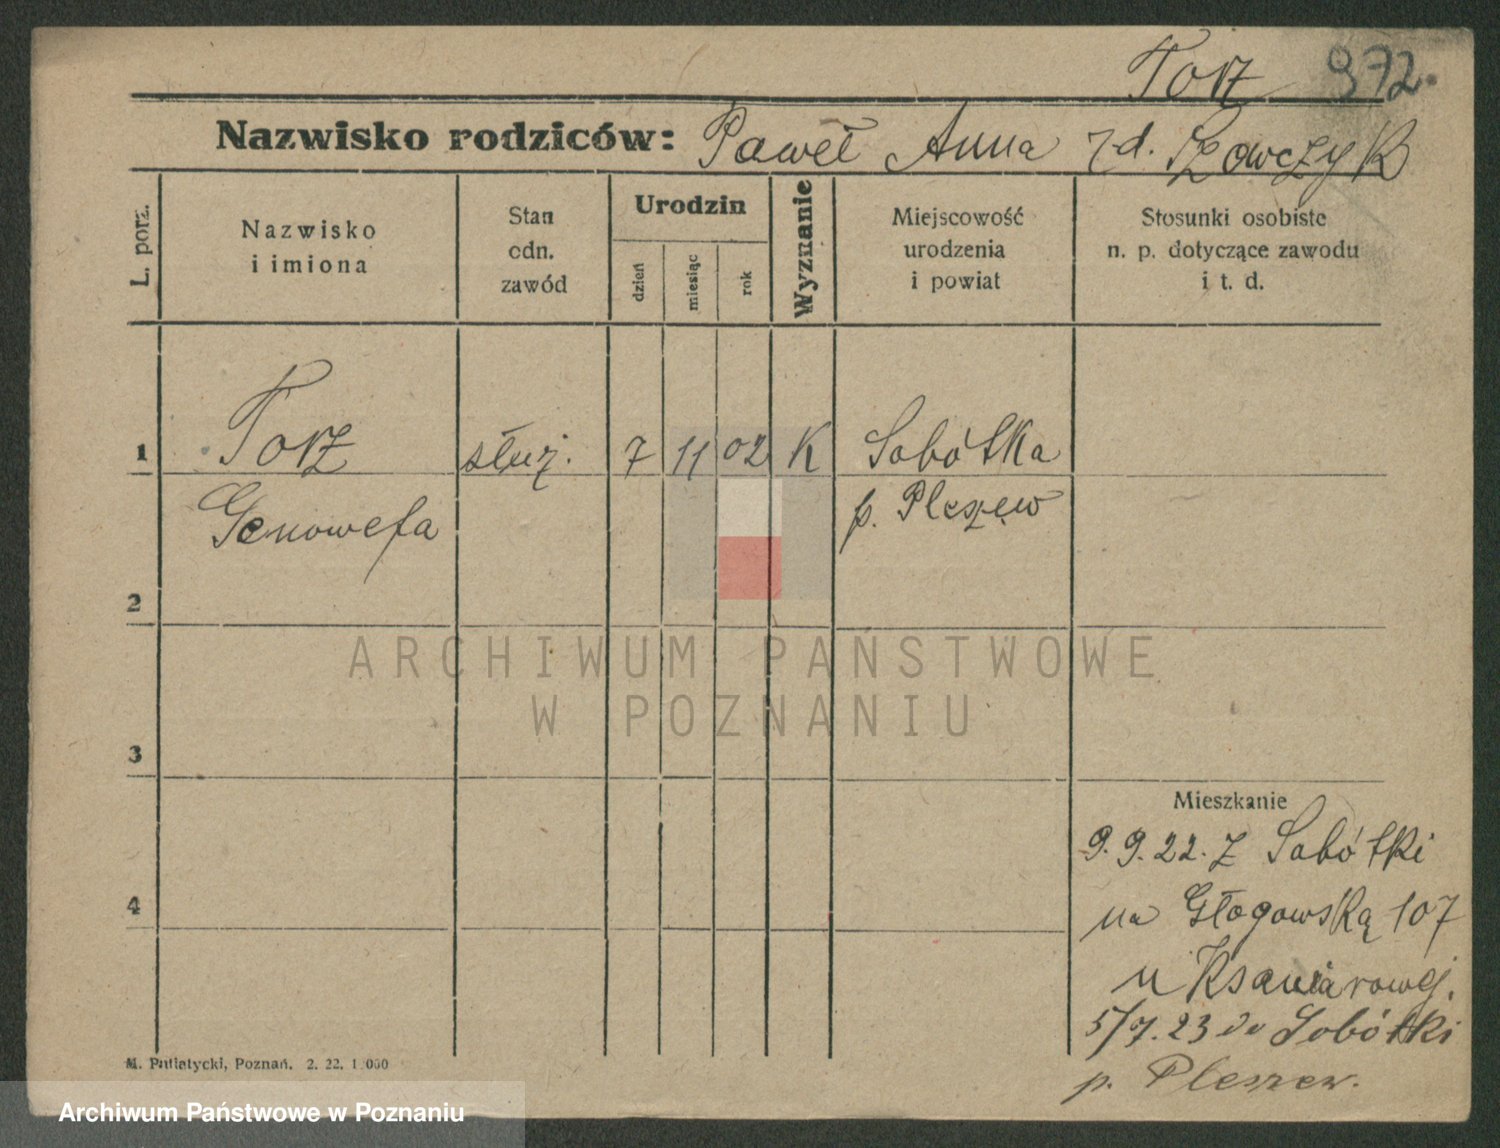 Torz 972.
Nazwisko rodziców: Paweł Anna zd. Szowczyk
L. porz.
Nazwisko
i imiona
Stan
odn.
zawód
Urodzin
dzień
miesiąc
rok
Wyznanie
Miejscowość
urodzenia
i powiat
Stosunki osobiste
n. p. dotyczące zawodu
i t. d.
1 Torz służ. 7 11 02 K Sobótka
Genowefa p. Pleszew
2
ARCHIWUM PAŃSTWOWE
W POZNANIU
3
Mieszkanie
9. 9. 22. z Sobótki
4
na Głogowską 107
u Ksawiarowej.
5/7. 23 do Sobótki
p. Pleszew.
M. Putiatycki, Poznań. 2. 22. 1.000
Archiwum Państwowe w Poznaniu